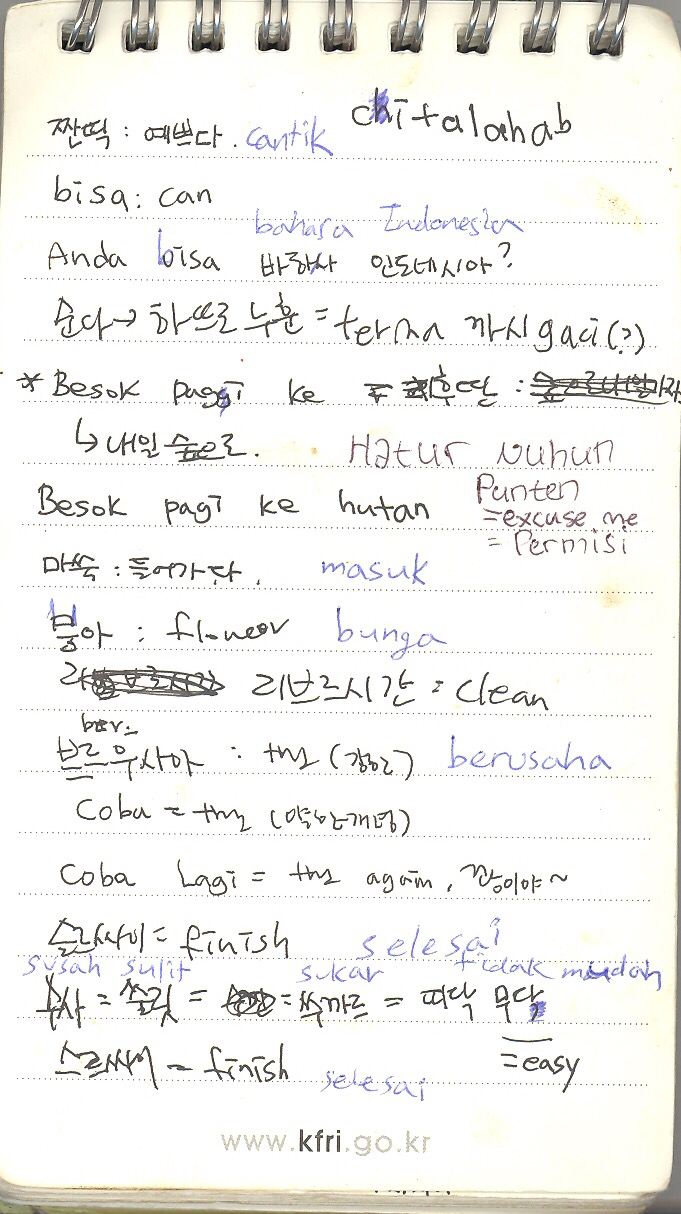 짠띡 : 예쁘다. cantik chitalahab
bisa : can
bahasa Indonesia
Anda bisa 바하사 인도네시아?
순다→ 하뚜르 누훈 = terima 까시 gaci(?)
* Besok paggi ke 후딴 :
↳ 내일 숲으로. Hatur nuhun
Besok pagi ke hutan Punten
= excuse me
= Permisi
마쑥 : 들어가다. masuk
붕아 : flower bunga
리브르시간 = clean
ber
브르우사아 : try (강한) berusaha
Coba = try (약한개념)
Coba Lagi = try again, 꽝이야~
슬르싸이 = finish selesai
susah sulit sukar tidak mudah
수사 = 쑬릿 = 쑤까르 = 띠닥 무다
= easy
스르싸이 = finish selesai
www.kfri.go.kr